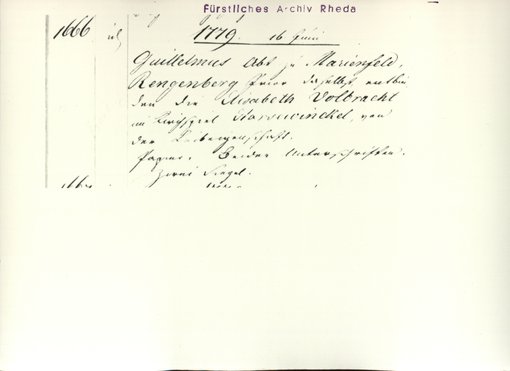 Fürstliches Archiv Rheda
1666
1779. 16 Juni
Guillelmus Abt zu Marienfeld,
Rengenberg Prior daselbst entbin
den die Elisabeth Volbracht
im Kirchspiel Harsewinckel, von
der Leibeigenschaft.
Papier. Beider Unterschriften.
zwei Siegel.